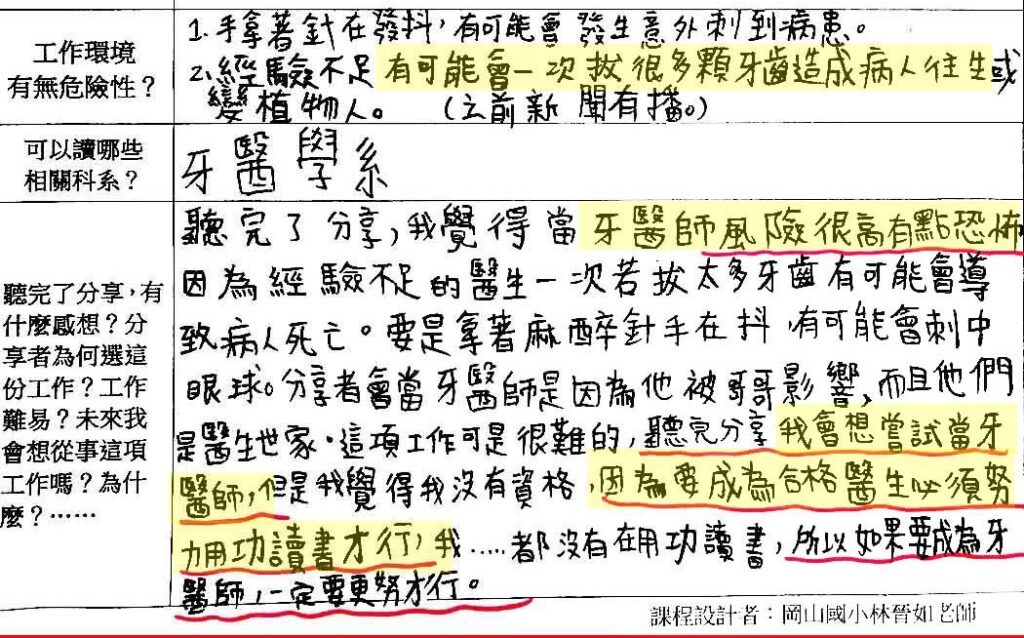 工作環境
有無危險性？
1.手拿著針在發抖，有可能會發生意外刺到病患。
2.經驗不足有可能會一次拔很多顆牙齒造成病人往生或
變植物人。（之前新聞有播。）
可以讀哪些
相關科系？
牙醫學系
聽完了分享，有
什麼感想？分
享者為何選這
份工作？工作
難易？未來我
會想從事這項
工作嗎？為什
麼？……
聽完了分享，我覺得當牙醫師風險很高有點恐怖
因為經驗不足的醫生一次若拔太多牙齒有可能會導
致病人死亡。要是拿著麻醉針手在抖，有可能會刺中
眼球。分享者會當牙醫師是因為他被哥哥影響，而且他們
是醫生世家。這項工作可是很難的，聽完分享我會想嘗試當牙
醫師，但是我覺得我沒有資格，因為要成為合格醫生必須努
力用功讀書才行，我.....都沒有在用功讀書，所以如果要成為牙
醫師，一定要更努才行。
課程設計者：岡山國小林晉如老師